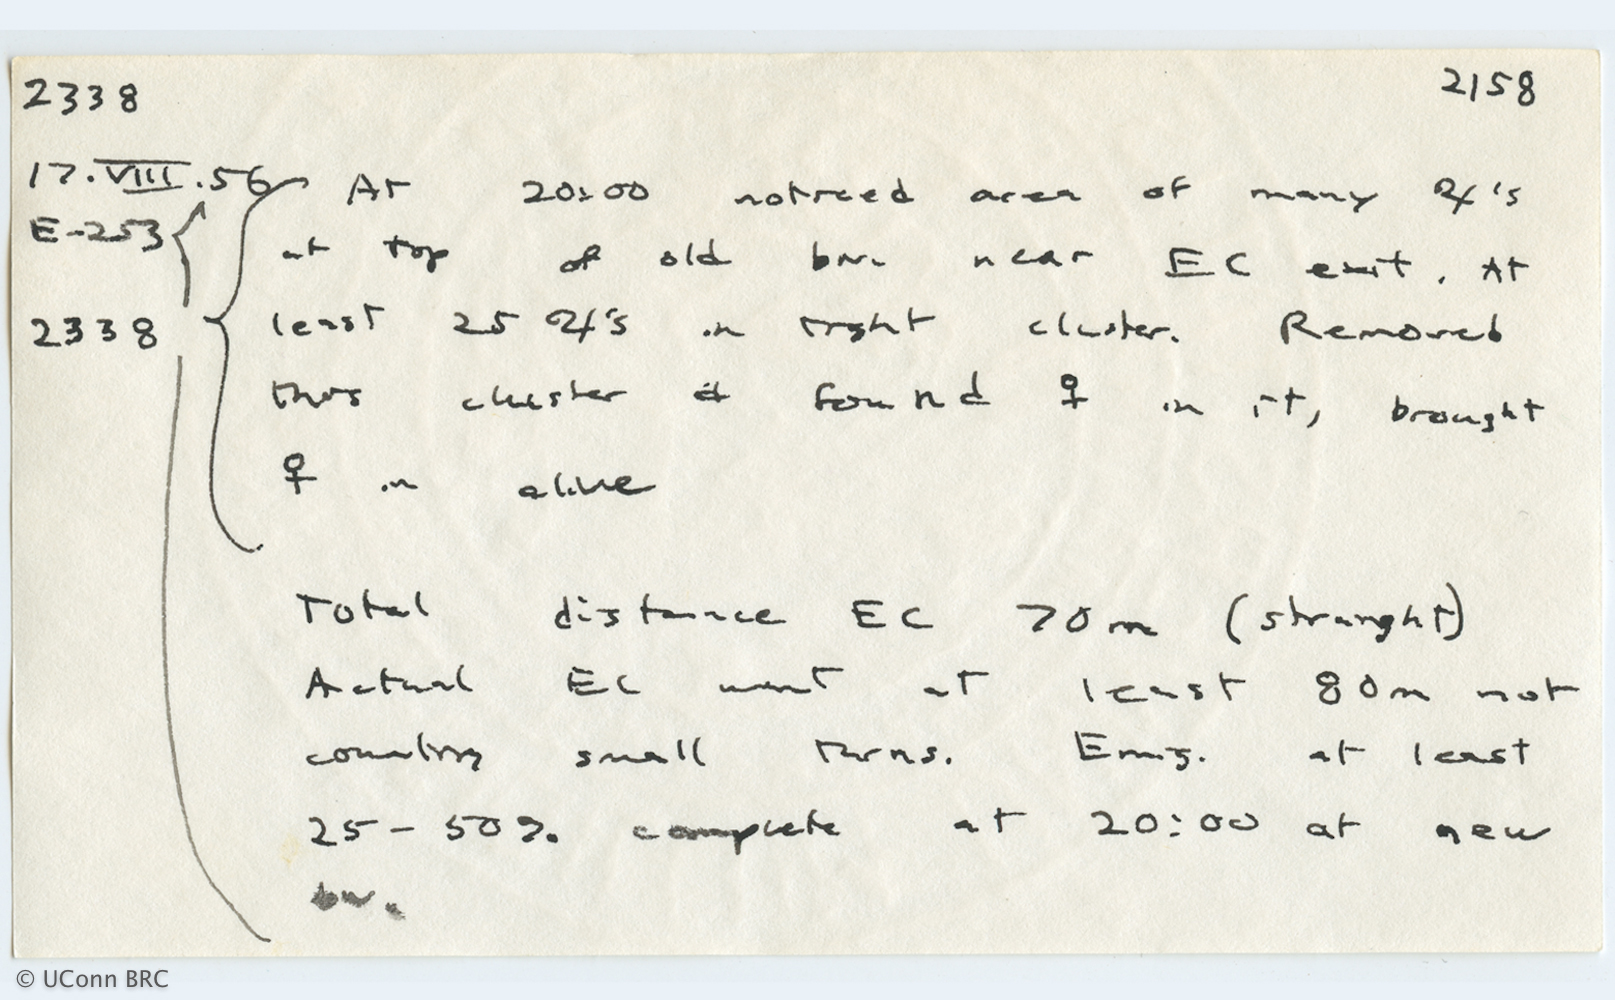 2338
2158
17.VIII.56
E-253
2338
At 20:00 noticed area of many ☿'s
at top of old biv. near EC exit. At
least 25 ☿'s in tight cluster. Removed
this cluster & found ♀ in it, brought
♀ in alive
Total distance EC 70m (straight)
Actual EC went at least 80m not
counting small turns. Emig. at least
25-50% complete at 20:00 at new
biv.
© UConn BRC